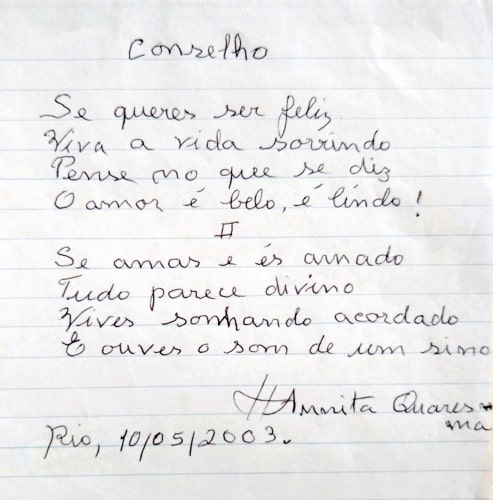 Conselho
Se queres ser feliz
Viva a vida sorrindo
Pense no que se diz
O amor é belo, é lindo!
II
Se amas e és amado
Tudo parece divino
Vives sonhando acordado
E ouves o som de um sino
Annita Quares-
ma
Rio, 10/05/2003.